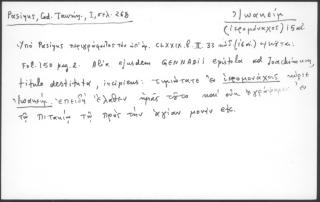 Pasinus, Cod. Taurin., I, σελ. 268
Ἰωακεὶμ
(ἱερομόναχος) 15 αἰ
Ὑπὸ Pasinus περιγράφεται τὸν ὑπ' ἀρ. CLXXIX. b. II. 33
Fol. 150 pag. 2. Alia ejusdem GENNADII epistola ad Joachimum,
titulo destituta, incipiens: τιμιώτατε ἐν ἱερομονάχοις κύριε
Ἰωακεὶμ. ἐπειδὴ ἔλαθεν ἡμᾶς τοῦτο καὶ οὐκ ἐγράψαμεν ἐν
τῷ πιτακίῳ τῷ πρὸς τὴν ἁγίαν μονὴν etc.